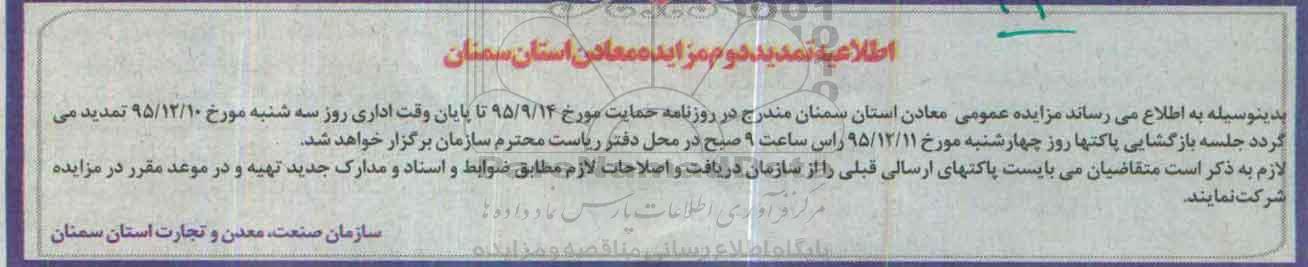 اطلاعیه تمدید دوم مزایده معادن استان سمنان
بدینوسیله به اطلاع می رساند مزایده عمومی معادن استان سمنان مندرج در روزنامه حمایت مورخ ۹۵/۹/۱۴ تا پایان وقت اداری روز سه شنبه مورخ ۹۵/۱۲/۱۰ تمدید می
گردد جلسه بازگشایی پاکتها روز چهارشنبه مورخ ۹۵/۱۲/۱۱ راس ساعت ۹ صبح در محل دفتر ریاست محترم سازمان برگزار خواهد شد.
لازم به ذکر است متقاضیان می بایست پاکتهای ارسالی قبلی را از سازمان دریافت و اصلاحات لازم مطابق ضوابط و اسناد و مدارک جدید تهیه و در موعد مقرر در مزایده
شرکت نمایند.
مرکز فرآوری اطلاعات پارس نماد داده ها
سازمان صنعت، معدن و تجارت استان سمنان
پایگاه اطلاع رسانی مناقصه و مزایده